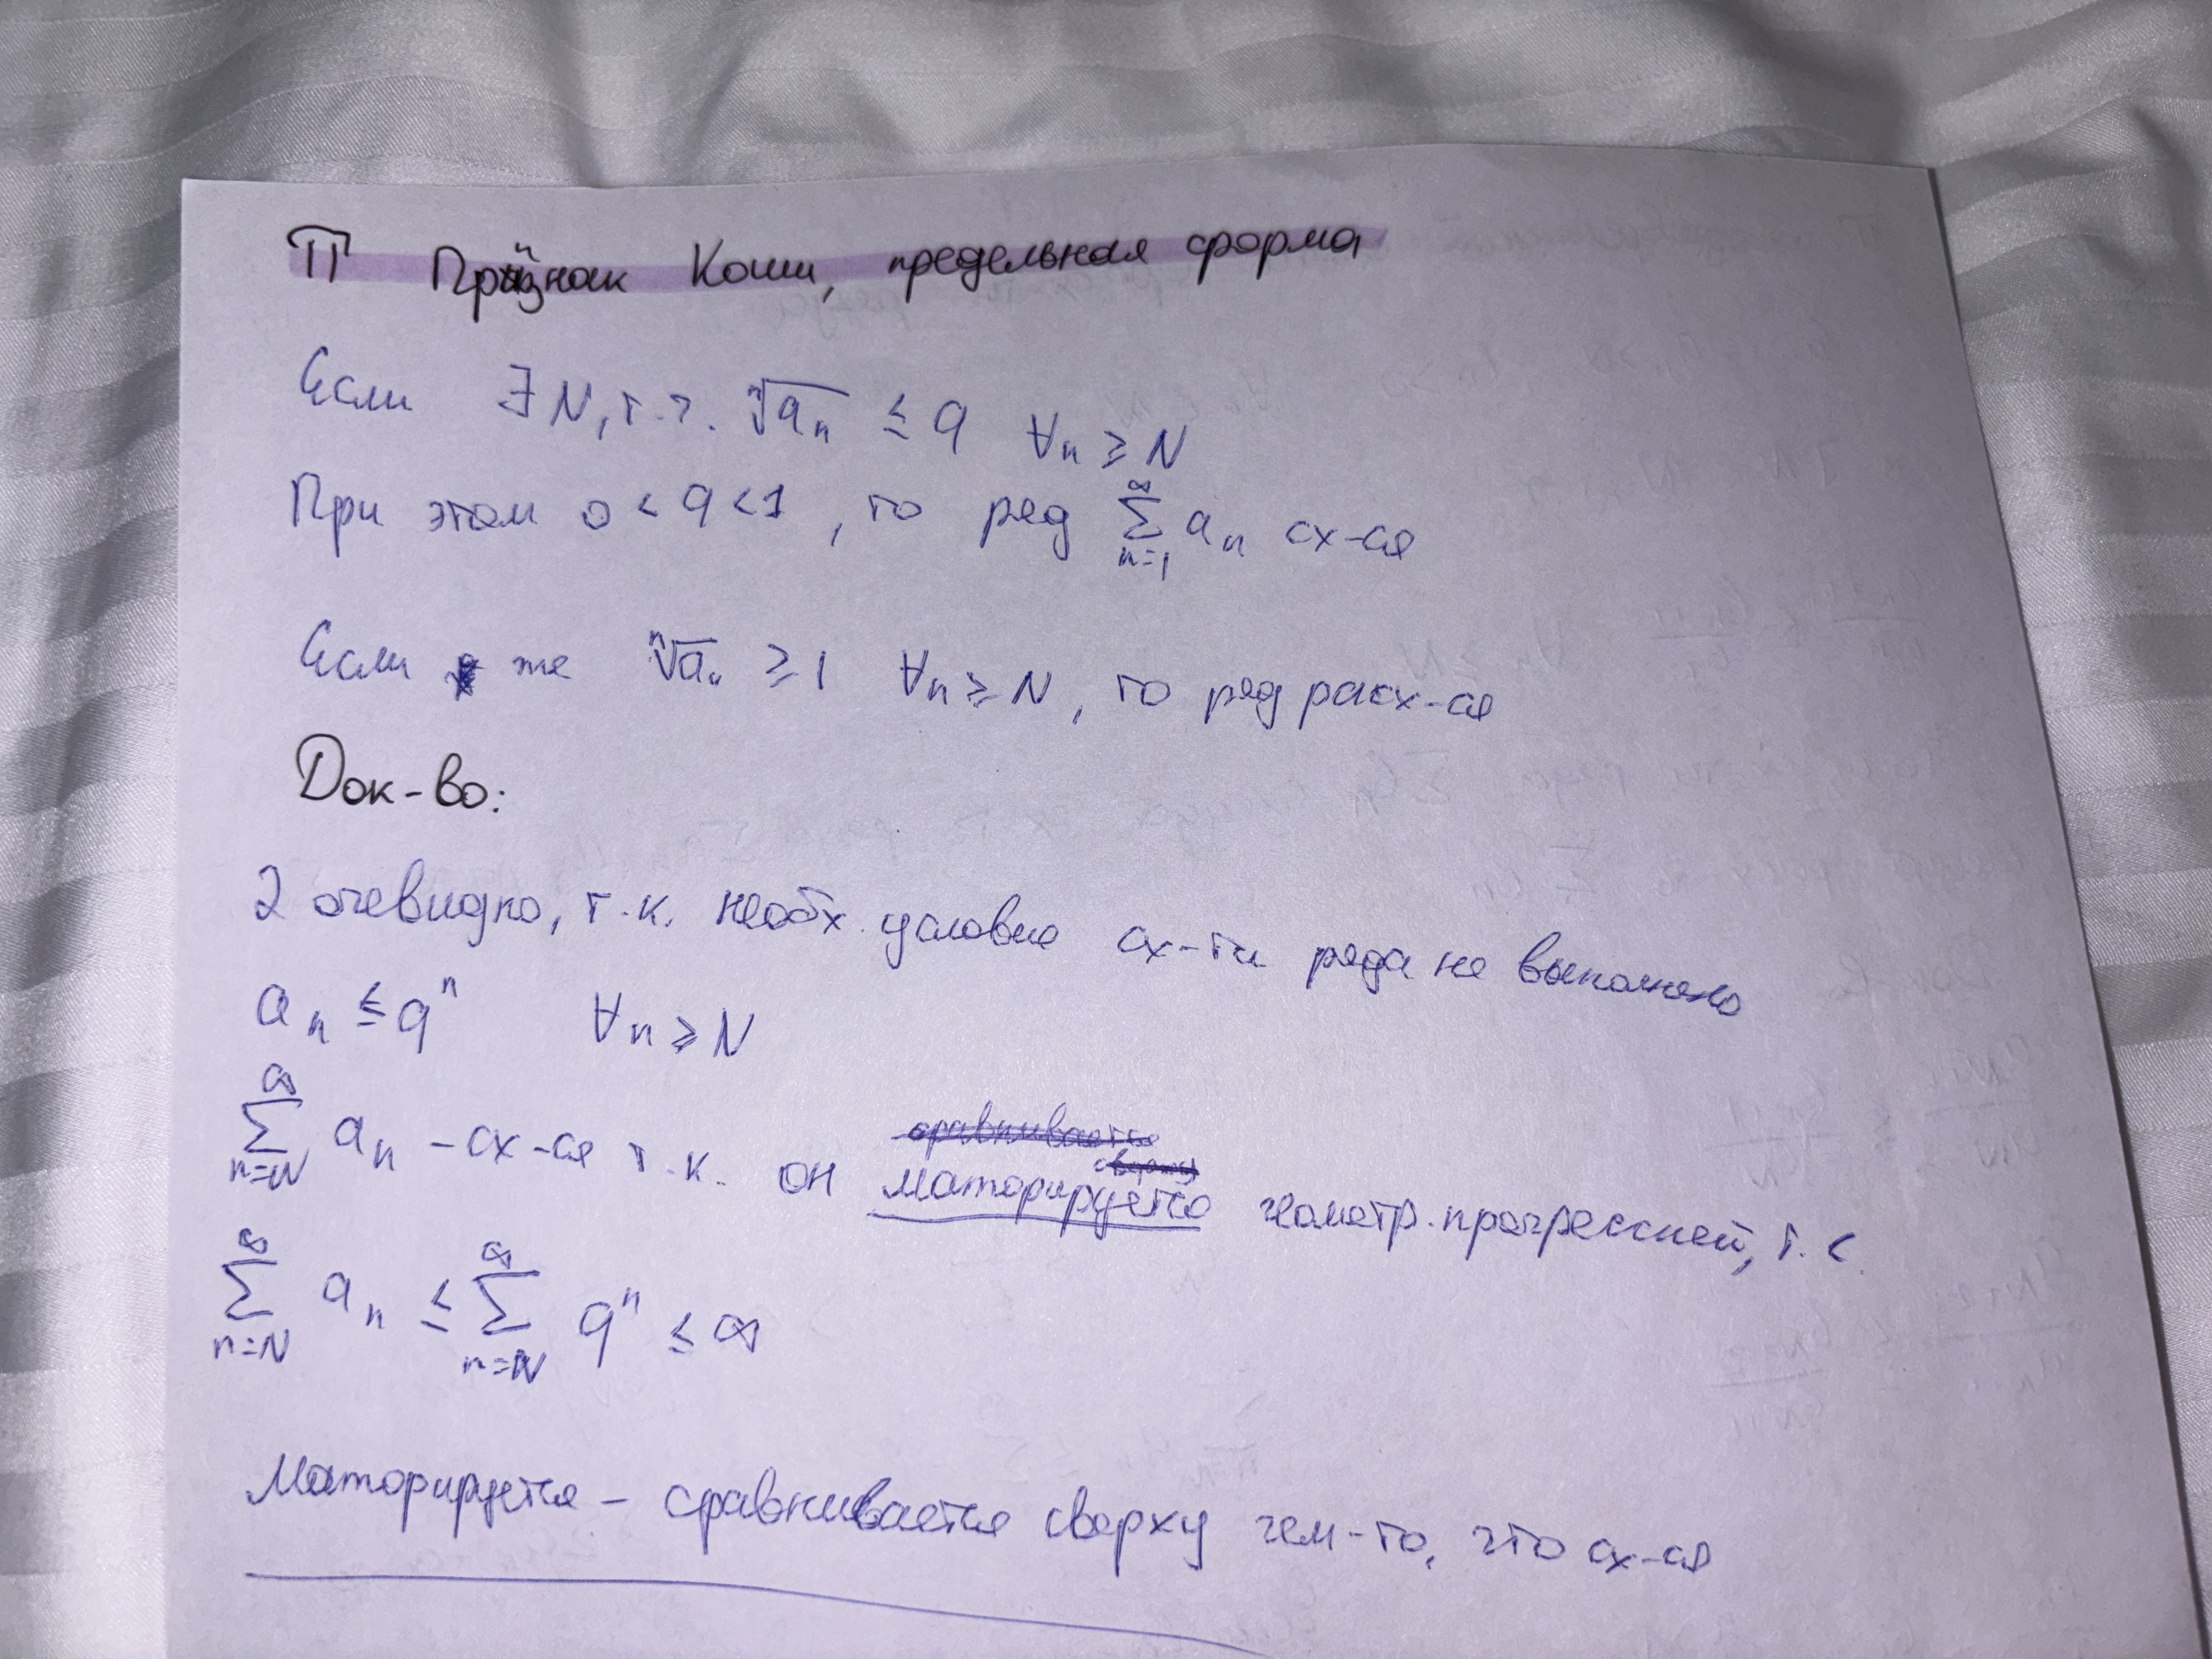 П Признак Коши, предельная форма
Если ∃ N, т.ч. ⁿ√aₙ ≤ q ∀n ≥ N
При этом 0 < q < 1, то ряд ∑ₙ₌₁^∞ aₙ сх-ся
Если же ⁿ√aₙ ≥ 1 ∀n ≥ N, то ряд расх-ся
Док-во:
2 очевидно, т.к. необх. условие сх-ти ряда не выполнено
aₙ ≤ qⁿ ∀n ≥ N
сравнивается
сверху
∑ₙ₌N^∞ aₙ - сх-ся т.к. он маторируется геометр. прогрессией, т.е.
∑ₙ₌N^∞ aₙ ≤ ∑ₙ₌N^∞ qⁿ ≤ ∞
Маторируется - сравнивается сверху чем-то, что сх-ся